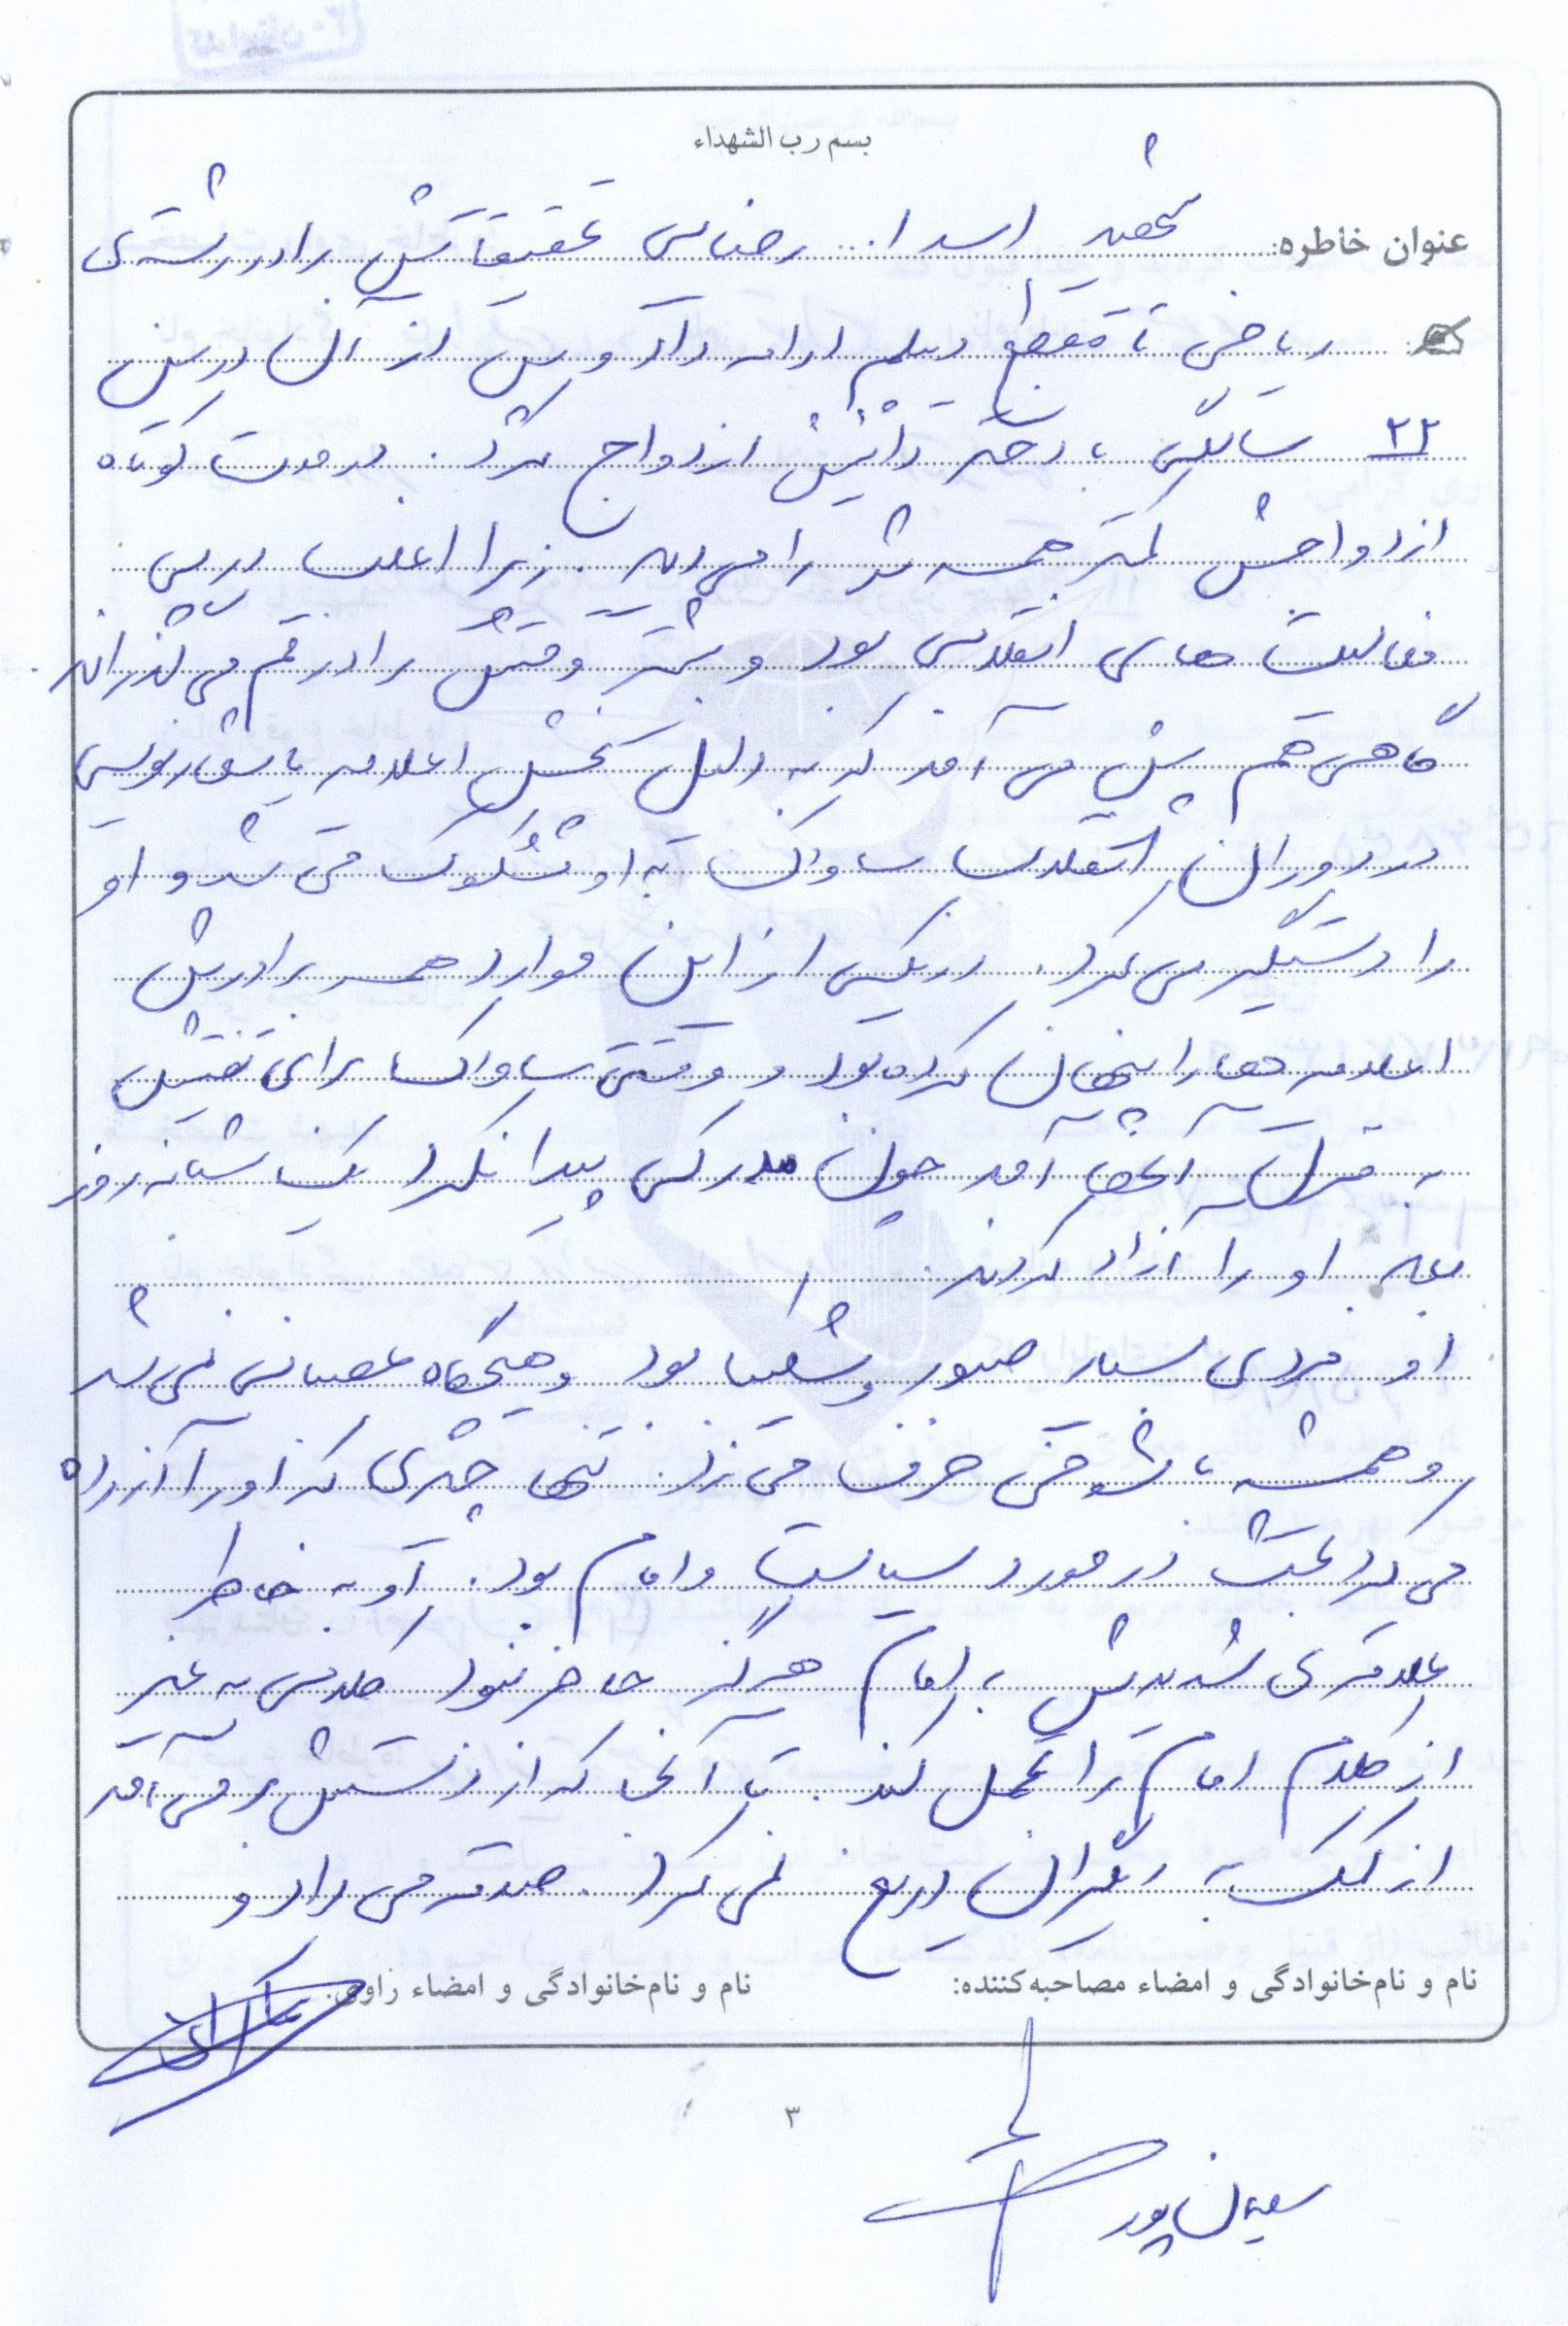 بسم رب الشهداء
عنوان خاطره: شهید اسدا... رضایی تحقیقاتش را در رشته‌ی
ریاضی تا مقطع دیپلم ادامه داد و پس از آن در سن
۲۲ سالگی با دختر دائیش ازدواج کرد. در مدت کوتاه
ازدواجش کمتر همسرش را می دید. زیرا اغلب در پی
فعالیت های انقلابی بود و بیشتر وقتش را در قم می گذراند.
گاهی هم پیش می آمد که به دلیل پخش اعلامیه یا شعارنویسی
در دوران انقلاب ساواک به او مشکوک می شد و او
را دستگیر می کرد. در یکی از این موارد همسر برادرش
اعلامیه ها را پنهان کرده بود و وقتی ساواک برای تفتیش
به منزل آنها آمد چون مدرکی پیدا نکرد یک شبانه روز
بعد او را آزاد کردند.
او فردی بسیار صبور و شکیبا بود و هیچگاه عصبانی نمی شد
و همیشه با شوخی حرف می زد. تنها چیزی که او را آزرده
می کرد بحث در مورد سیاست و امام بود. او به خاطر
علاقه‌ی شدیدش به امام هرگز حاضر نبود کلامی به غیر
از کلام امام را تحمل کند. تا آنجا که از دستش بر می آمد
از کمک به دیگران دریغ نمی کرد. صدقه می داد و
نام و نام‌خانوادگی و امضاء مصاحبه‌کننده: نام و نام‌خانوادگی و امضاء راوی:
۳